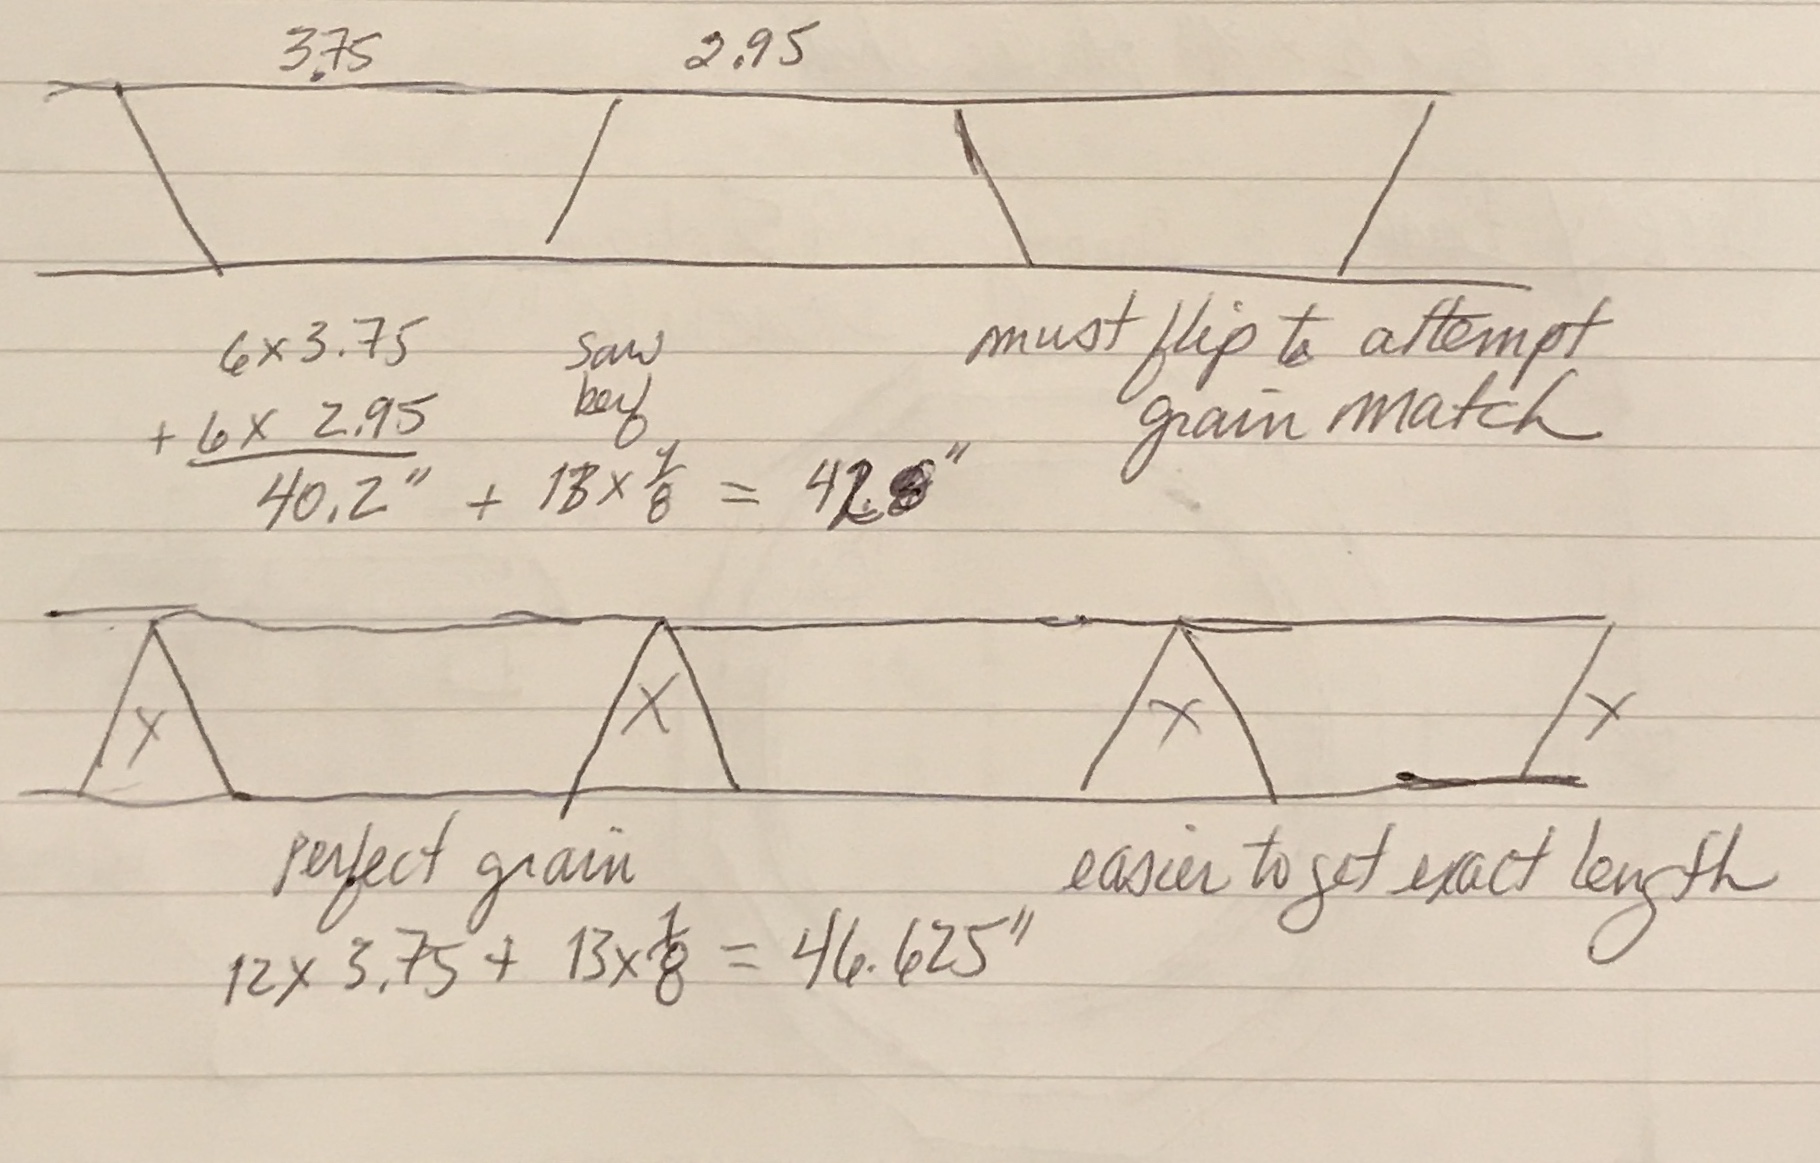 3.75 2.95
6 x 3.75 saw
+ 6 x 2.95 kerf
40.2" + 13 x 1/8 =
must flip to attempt
grain match
X X X X
perfect grain
easier to get exact length
12 x 3.75 + 13 x 1/8 = 46.625"